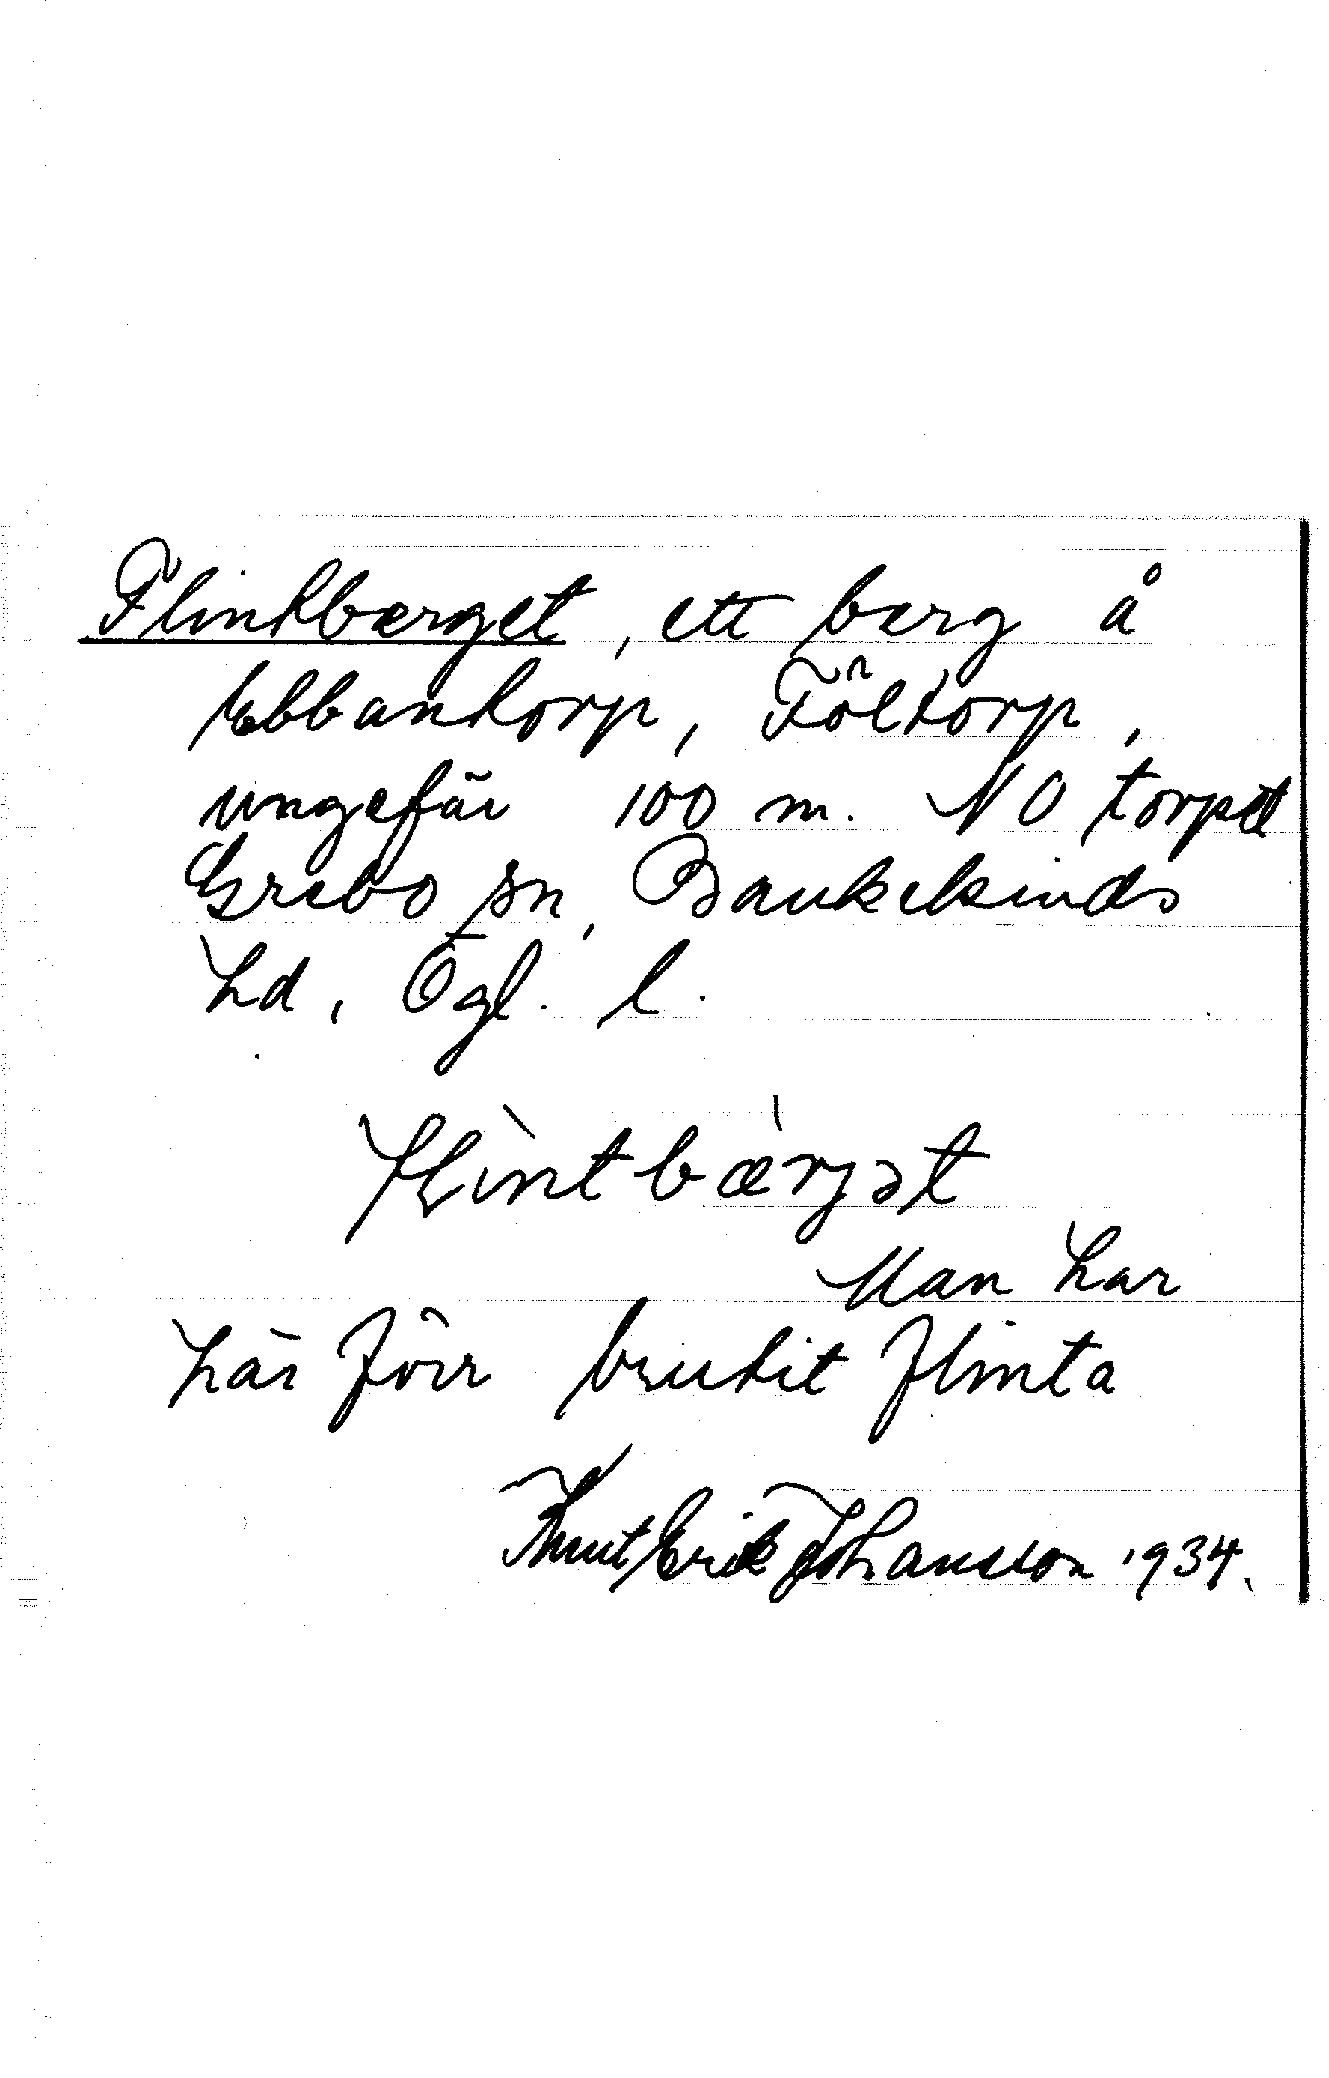 Flintberget, ett berg å
Ebbantorp, Föltorp,
ungefär 100 m. NO torpet
Grebo sn, Bankekinds
hd, Ögl. l.
flìntbæ̀rjət
Man har
här förr brutit flinta
Knut Erik Johansson 1934.